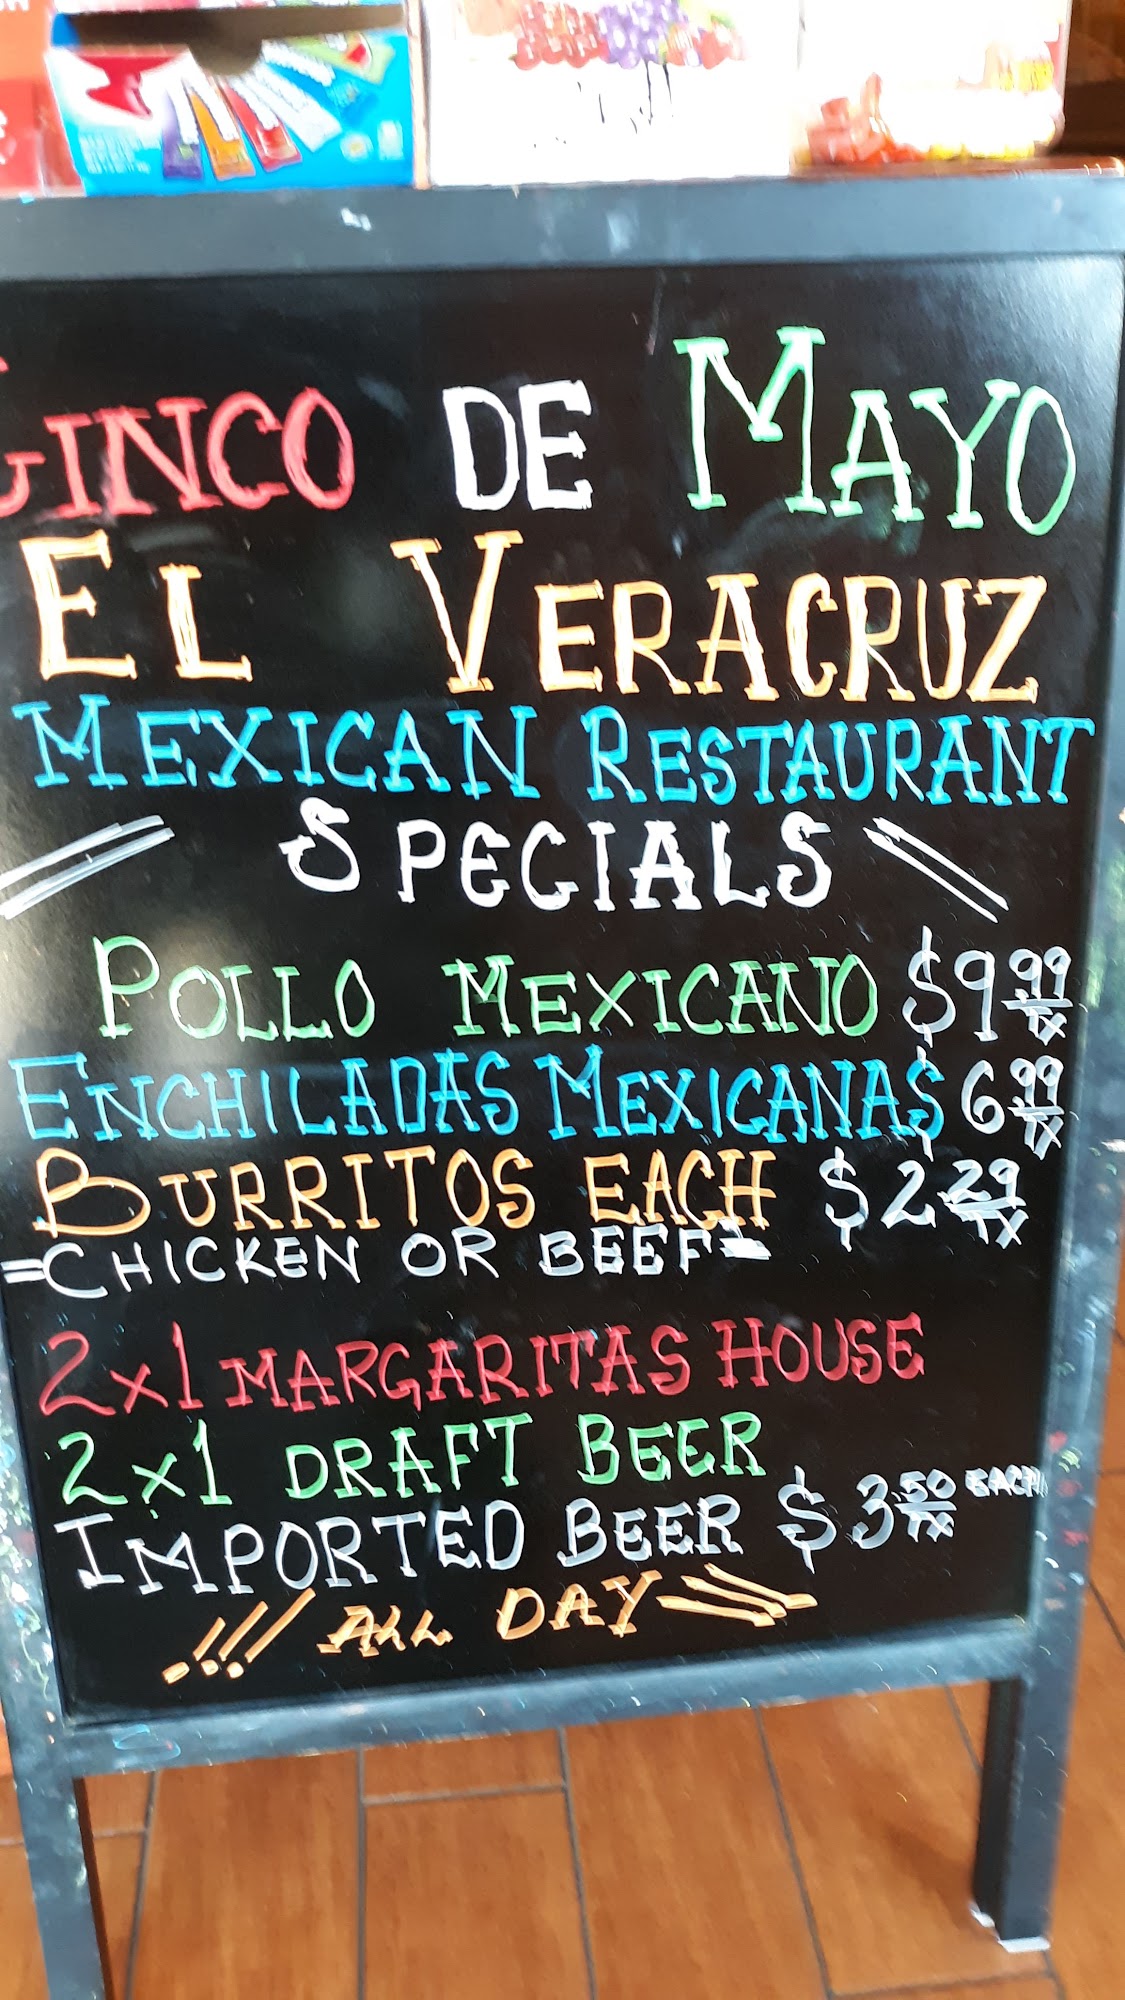 CINCO DE MAYO
EL VERACRUZ
MEXICAN RESTAURANT
SPECIALS
POLLO MEXICANO $9.99 TX
ENCHILADAS MEXICANAS $6.99 TX
BURRITOS EACH $2.29 TX
=CHICKEN OR BEEF=
2x1 MARGARITAS HOUSE
2x1 DRAFT BEER
IMPORTED BEER $3.50 TX EACH
!!! ALL DAY